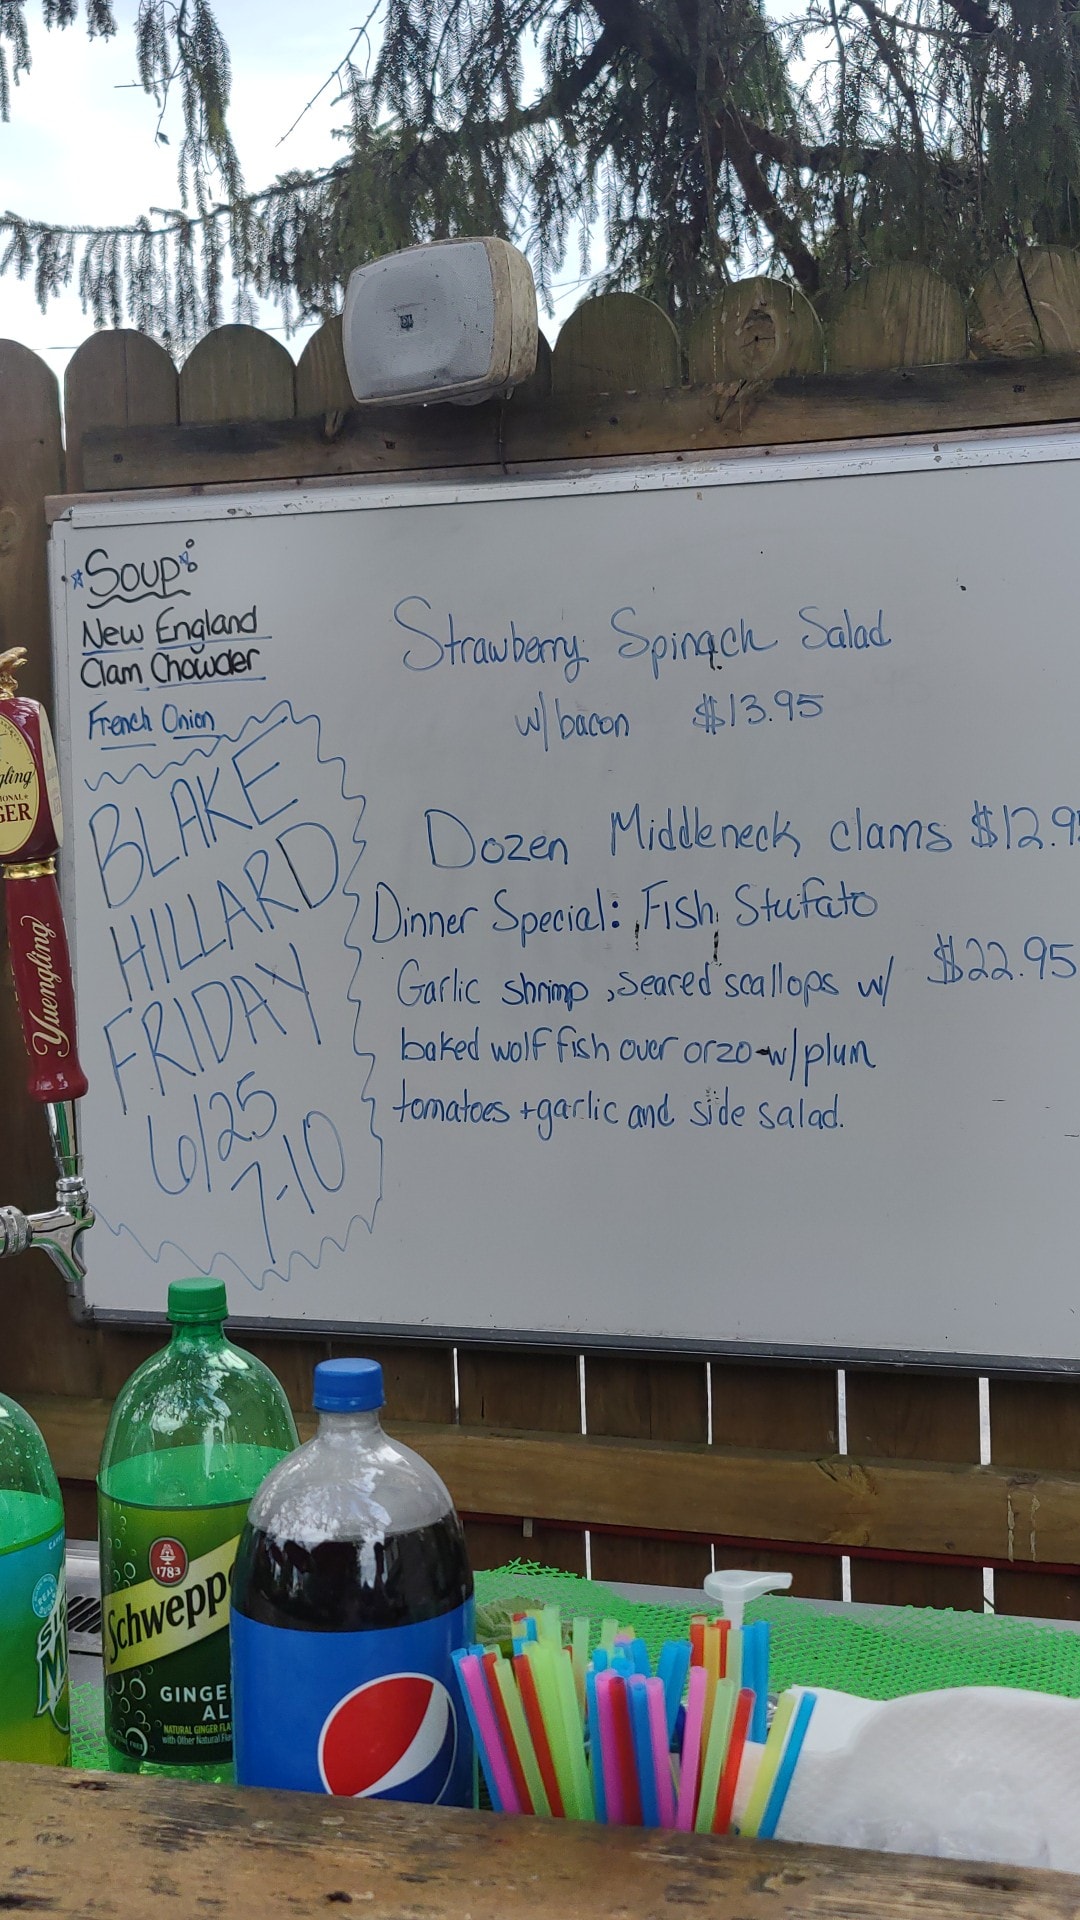 Soup:
New England
Clam Chowder
French Onion
BLAKE
HILLARD
FRIDAY
6/25
7-10
Strawberry Spinach Salad
w/bacon $13.95
Dozen Middleneck clams $12.9
Dinner Special: Fish Stufato
$22.95
Garlic shrimp, seared scallops w/
baked wolf fish over orzo w/plum
tomatoes + garlic and side salad.
gling
GER
Yuengling
1783
Schwepp
GINGE
AL
NATURAL GINGER FLA
with Other Natural Fla